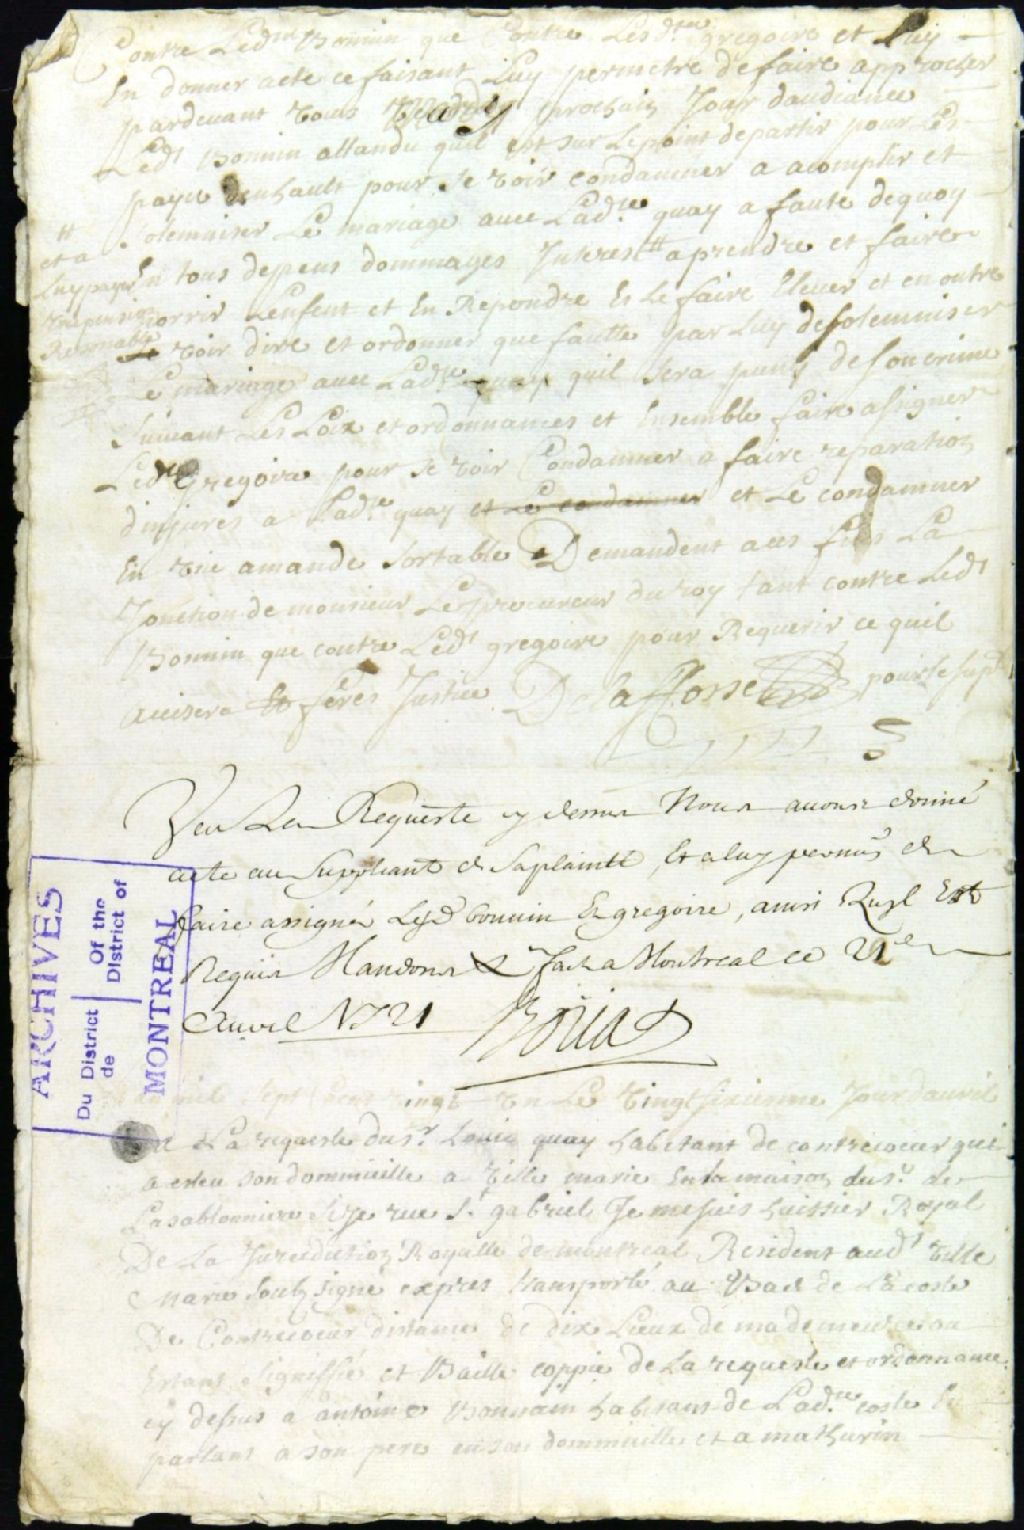 Contre Led.t Bonnin que Contre Lesd.t gregoire et Luy
En donner acte ce faisant Luy permetre de faire approcher
pardevant vous prochain Jour daudiance
Led.t Bonnin attandu quil est sur Le point de partir pour Les
pays denhault pour se voir condamner a acomplir et
solemniser Le mariage avec Lad.te quay a faute dequoy
En tous depens dommages Interest # aprendre et faire
# et a Luy payer
norrir Lenfent et En Repondre Et Le faire Elever et en outre
Resonable
voir dire et ordonner que faulte par Luy de solemniser
Le mariage avec Lad.te quay quil sera puny de son crime
suivant Les Loix et ordonnances et Ensemble faire asigner
Led.t Gregoire pour se voir Condamner a faire reparation
dinjures a Lad.te quay et Le condamner et Le condamner
En vne amande sortable Demandent aux fins La
Jonction de monsieur Le procureur du roy tant contre Led.t
Bonnin que contre Led.t gregoire pour Requerir ce quil
avisera Et ferés Justice Delafosse pour le sup.t
Veu La Requeste cy dessus Nous avons donné
acte au Suppliant de sa plainte, Et a luy permis de
faire assigner Lesd. bonnin Et gregoire, ainsi Quil Est
Requis Mandons & fait a Montreal ce 21e
Avril 1721 Bouat
ARCHIVES
Du District | Of the
de | District of
MONTREAL
mile sept Cent vingt vn Le vingt sixienne Jour davril
a La requeste du s.r Louis quay habitant de contrecoeur qui
a esleu son dommicille a ville marie En la maison du s.r de
Lasablonniere size rue S.t gabriel Je me suis huissier Royal
De La Jurisdiction Royalle de montreal Resident aud.t ville
marie soubsigné expres transporté au Bas de La coste
De Contrecoeur distance de dix Lieux de ma demeure ou
Estant signiffié et Baillé coppie de La requeste et ordonnance
cy dessus a antoine Bonnain habitant de Lad.te coste En
parlant a son pere en son dommicille et a mathurin